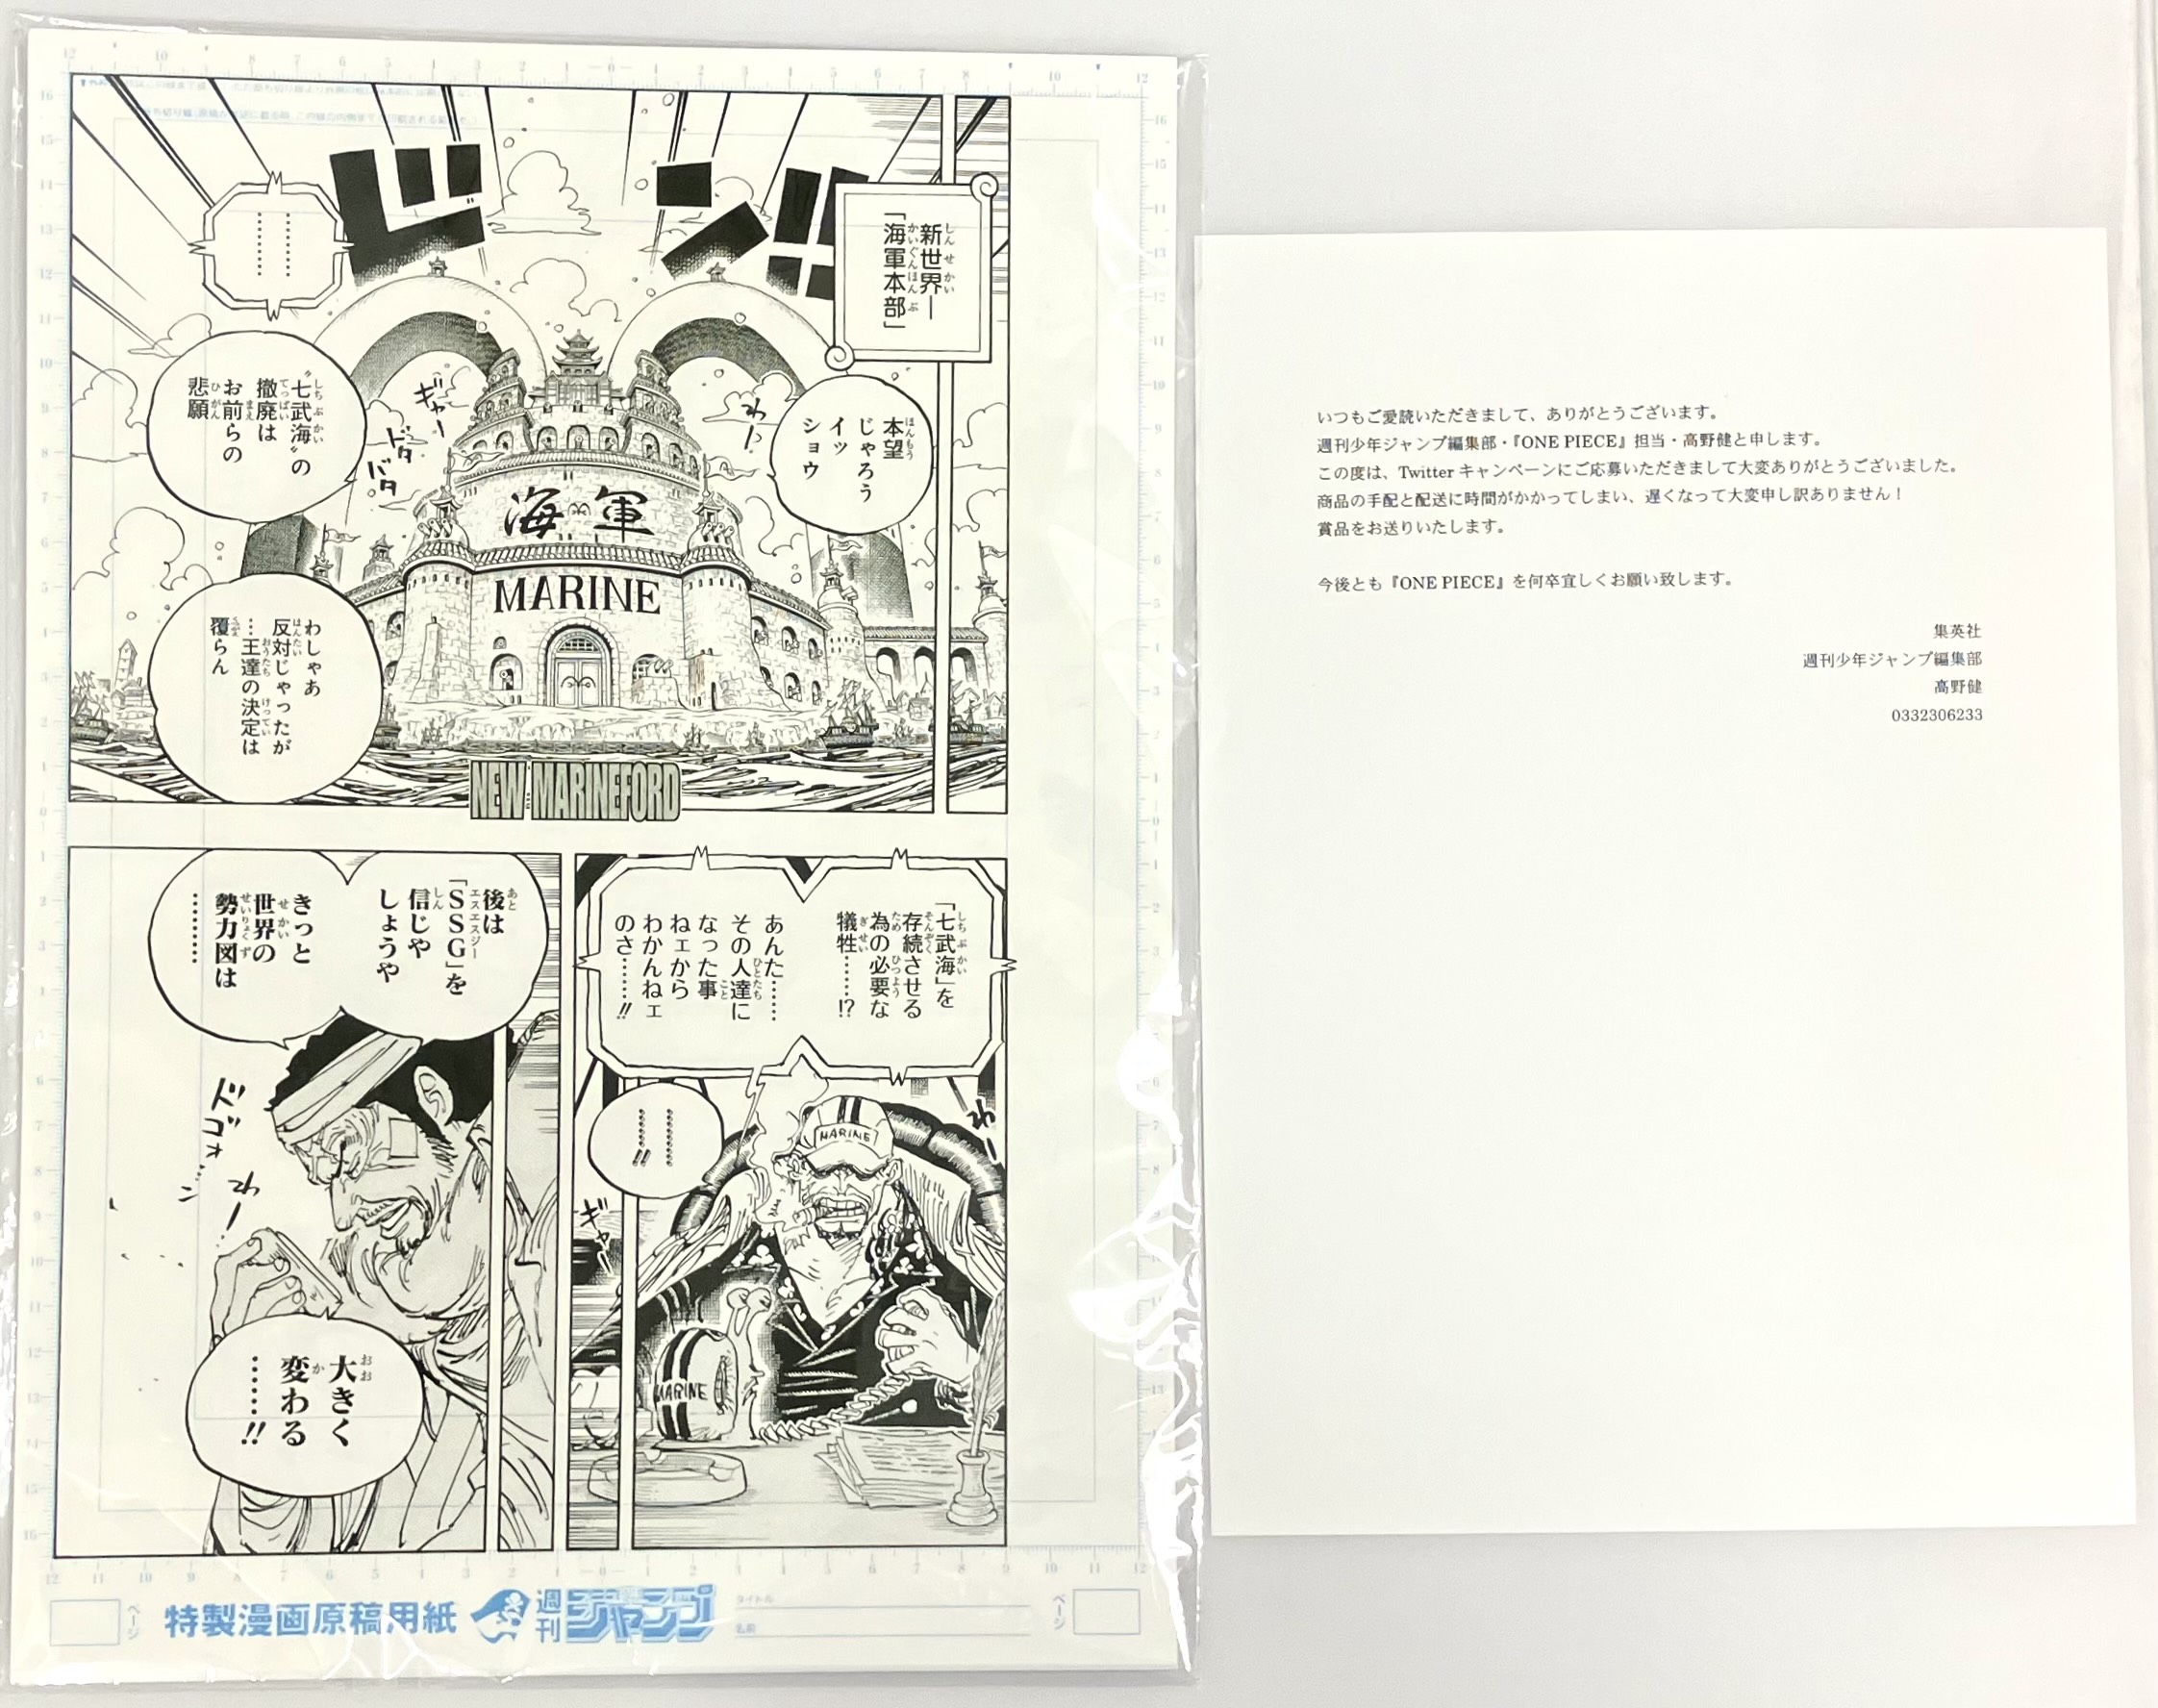 新世界ー
「海軍本部」
ドン!!
本望
じゃろう
イッ
ショウ
………………
“七武海”の
撤廃は
お前らの
悲願
わしゃあ
反対じゃったが
…王達の決定は
覆らん
わー
ギャー
ドタ
バタ
海軍
MARINE
NEW MARINEFORD
「七武海」を
存続させる
為の必要な
犠牲……!?
あんた……
その人達に
なった事
ねェから
わかんねェ
のさ……!!
………………!!
わー
ギャー
MARINE
MARINE
後は
「SSG」を
信じや
しょうや
きっと
世界の
勢力図は
………
ドゴォ…ン
わー
大きく
変わる
……!!
ページ
特製漫画原稿用紙
週刊
ジャンプ
タイトル
名前
ページ
いつもご愛読いただきまして、ありがとうございます。
週刊少年ジャンプ編集部・『ONE PIECE』担当・高野健と申します。
この度は、Twitter キャンペーンにご応募いただきまして大変ありがとうございました。
商品の手配と配送に時間がかかってしまい、遅くなって大変申し訳ありません！
賞品をお送りいたします。
今後とも『ONE PIECE』を何卒宜しくお願い致します。
集英社
週刊少年ジャンプ編集部
高野健
0332306233